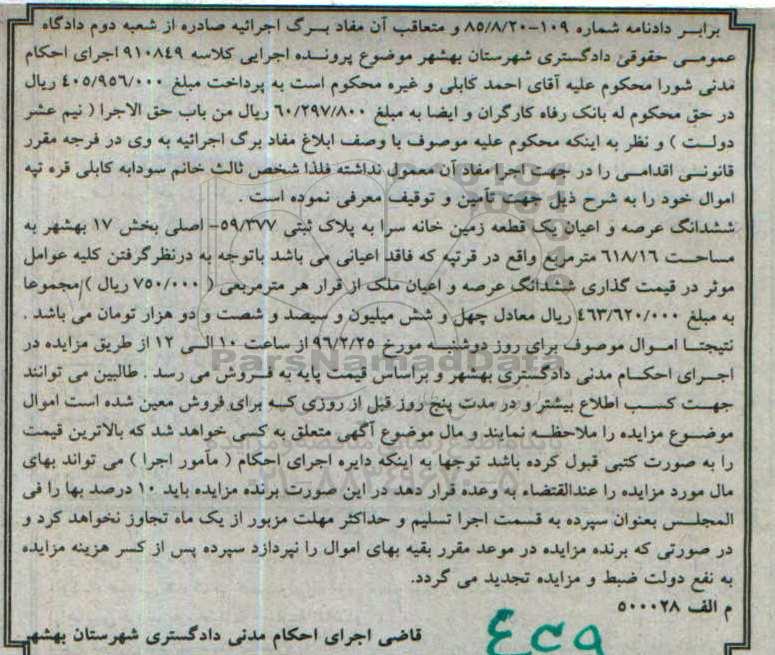 برابر دادنامه شماره ۱۰۹-۸۵/۸/۲۰ و متعاقب آن مفاد برگ اجرائیه صادره از شعبه دوم دادگاه
عمومی حقوقی دادگستری شهرستان بهشهر موضوع پرونده اجرایی کلاسه ۹۱۰۸۴۹ اجرای احکام
مدنی شورا محکوم علیه آقای احمد کابلی و غیره محکوم است به پرداخت مبلغ ۴۰۵/۹۵۶/۰۰۰ ریال
در حق محکوم له بانک رفاه کارگران و ایضا به مبلغ ۶۰/۲۹۷/۸۰۰ ریال من باب حق الاجرا ( نیم عشر
دولت ) و نظر به اینکه محکوم علیه موصوف با وصف ابلاغ مفاد برگ اجرائیه به وی در فرجه مقرر
قانونی اقدامی را در جهت اجرا مفاد آن معمول نداشته فلذا شخص ثالث خانم سودابه کابلی قره تپه
اموال خود را به شرح ذیل جهت تأمین و توقیف معرفی نموده است .
ششدانگ عرصه و اعیان یک قطعه زمین خانه سرا به پلاک ثبتی ۵۹/۳۷۷- اصلی بخش ۱۷ بهشهر به
مساحت ۶۱۸/۱۶ مترمربع واقع در قرتپه که فاقد اعیانی می باشد باتوجه به درنظرگرفتن کلیه عوامل
موثر در قیمت گذاری ششدانگ عرصه و اعیان ملک از قرار هر مترمربعی ( ۷۵۰/۰۰۰ ریال ) مجموعا
به مبلغ ۴۶۳/۶۲۰/۰۰۰ ریال معادل چهل و شش میلیون و سیصد و شصت و دو هزار تومان می باشد .
نتیجتا اموال موصوف برای روز دوشنبه مورخ ۹۶/۲/۲۵ از ساعت ۱۰ الی ۱۲ از طریق مزایده در
اجرای احکام مدنی دادگستری بهشهر و براساس قیمت پایه به فروش می رسد . طالبین می توانند
جهت کسب اطلاع بیشتر و در مدت پنج روز قبل از روزی که برای فروش معین شده است اموال
موضوع مزایده را ملاحظه نمایند و مال موضوع آگهی متعلق به کسی خواهد شد که بالاترین قیمت
را به صورت کتبی قبول کرده باشد توجها به اینکه دایره اجرای احکام ( مأمور اجرا ) می تواند بهای
مال مورد مزایده را عندالقتضاء به وعده قرار دهد در این صورت برنده مزایده باید ۱۰ درصد بها را فی
المجلس بعنوان سپرده به قسمت اجرا تسلیم و حداکثر مهلت مزبور از یک ماه تجاوز نخواهد کرد و
در صورتی که برنده مزایده در موعد مقرر بقیه بهای اموال را نپردازد سپرده پس از کسر هزینه مزایده
به نفع دولت ضبط و مزایده تجدید می گردد.
م الف ۵۰۰۰۲۸
قاضی اجرای احکام مدنی دادگستری شهرستان بهشهر
ParsNamadData
۰۲۱-۸۸۳۴۹۶۷۰-۵